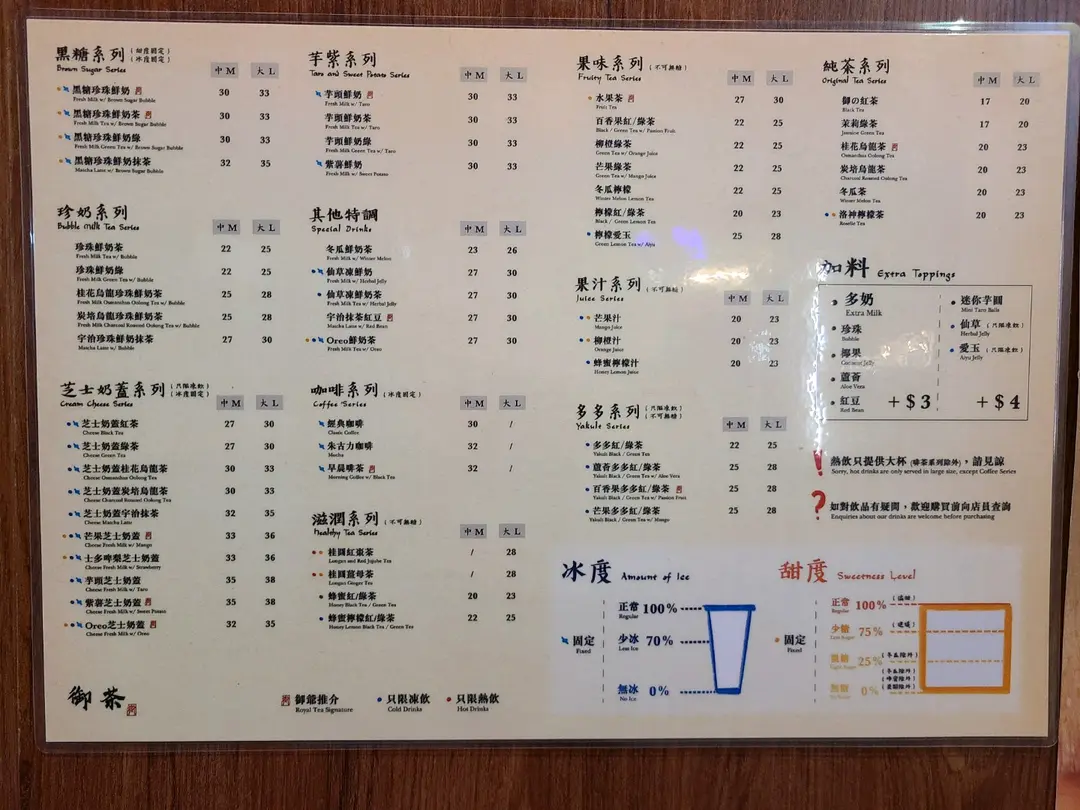 黑糖系列 (甜度固定)
(冰度固定)
Brown Sugar Series
中 M 大 L
黑糖珍珠鮮奶 30 33
Fresh Milk w/ Brown Sugar Bubble
黑糖珍珠鮮奶茶 30 33
Fresh Milk Tea w/ Brown Sugar Bubble
黑糖珍珠鮮奶綠 30 33
Fresh Milk Green Tea w/ Brown Sugar Bubble
黑糖珍珠鮮奶抹茶 32 35
Matcha Latte w/ Brown Sugar Bubble
珍奶系列
Bubble Milk Tea Series
中 M 大 L
珍珠鮮奶茶 22 25
Fresh Milk Tea w/ Bubble
珍珠鮮奶綠 22 25
Fresh Milk Green Tea w/ Bubble
桂花烏龍珍珠鮮奶茶 25 28
Fresh Milk Osmanthus Oolong Tea w/ Bubble
炭培烏龍珍珠鮮奶茶 25 28
Fresh Milk Charcoal Roasted Oolong Tea w/ Bubble
宇治珍珠鮮奶抹茶 27 30
Matcha Latte w/ Bubble
芝士奶蓋系列 (只限凍飲)
(冰度固定)
Cream Cheese Series
中 M 大 L
芝士奶蓋紅茶 27 30
Cheese Black Tea
芝士奶蓋綠茶 27 30
Cheese Green Tea
芝士奶蓋桂花烏龍茶 30 33
Cheese Osmanthus Oolong Tea
芝士奶蓋炭培烏龍茶 30 33
Cheese Charcoal Roasted Oolong Tea
芝士奶蓋宇治抹茶 32 35
Cheese Matcha Latte
芒果芝士奶蓋 33 36
Cheese Fresh Milk w/ Mango
士多啤梨芝士奶蓋 33 36
Cheese Fresh Milk w/ Strawberry
芋頭芝士奶蓋 35 38
Cheese Fresh Milk w/ Taro
紫薯芝士奶蓋 35 38
Cheese Fresh Milk w/ Sweet Potato
Oreo芝士奶蓋 32 35
Cheese Fresh Milk w/ Oreo
御茶
芋紫系列
Taro and Sweet Potato Series
中 M 大 L
芋頭鮮奶 30 33
Fresh Milk w/ Taro
芋頭鮮奶茶 30 33
Fresh Milk Tea w/ Taro
芋頭鮮奶綠 30 33
Fresh Milk Green Tea w/ Taro
紫薯鮮奶 30 33
Fresh Milk w/ Sweet Potato
其他特調
Special Drinks
中 M 大 L
冬瓜鮮奶茶 23 26
Fresh Milk w/ Winter Melon
仙草凍鮮奶 27 30
Fresh Milk w/ Herbal Jelly
仙草凍鮮奶茶 27 30
Fresh Milk Tea w/ Herbal Jelly
宇治抹茶紅豆 27 30
Matcha Latte w/ Red Bean
Oreo鮮奶茶 27 30
Fresh Milk Tea w/ Oreo
咖啡系列 (冰度固定)
Coffee Series
中 M 大 L
經典咖啡 30 /
Classic Coffee
朱古力咖啡 32 /
Mocha
早晨啡茶 32 /
Morning Coffee w/ Black Tea
滋潤系列 (不可無糖)
Healthy Tea Series
中 M 大 L
桂圓紅棗茶 / 28
Longan and Red Jujube Tea
桂圓薑母茶 / 28
Longan Ginger Tea
蜂蜜紅/綠茶 20 23
Honey Black Tea / Green Tea
蜂蜜檸檬紅/綠茶 22 25
Honey Lemon Black Tea / Green Tea
御爺推介
Royal Tea Signature
只限凍飲
Cold Drinks
只限熱飲
Hot Drinks
果味系列 (不可無糖)
Fruity Tea Series
中 M 大 L
水果茶 27 30
Fruit Tea
百香果紅/綠茶 22 25
Black / Green Tea w/ Passion Fruit
柳橙綠茶 22 25
Green Tea w/ Orange Juice
芒果綠茶 22 25
Green Tea w/ Mango Juice
冬瓜檸檬 22 25
Winter Melon Lemon Tea
檸檬紅/綠茶 20 23
Black / Green Lemon Tea
檸檬愛玉 25 28
Green Lemon Tea w/ Aiyu
果汁系列 (不可無糖)
Juice Series
中 M 大 L
芒果汁 20 23
Mango Juice
柳橙汁 20 23
Orange Juice
蜂蜜檸檬汁 20 23
Honey Lemon Juice
多多系列 (只限凍飲)
(不可無糖)
Yakult Series
中 M 大 L
多多紅/綠茶 22 25
Yakult Black / Green Tea
蘆薈多多紅/綠茶 25 28
Yakult Black / Green Tea w/ Aloe Vera
百香果多多紅/綠茶 25 28
Yakult Black / Green Tea w/ Passion Fruit
芒果多多紅/綠茶 25 28
Yakult Black / Green Tea w/ Mango
純茶系列
Original Tea Series
中 M 大 L
御の紅茶 17 20
Black Tea
茉莉綠茶 17 20
Jasmine Green Tea
桂花烏龍茶 20 23
Osmanthus Oolong Tea
炭培烏龍茶 20 23
Charcoal Roasted Oolong Tea
冬瓜茶 20 23
Winter Melon Tea
洛神檸檬茶 20 23
Roselle Tea
加料 Extra Toppings
多奶
Extra Milk
珍珠
Bubble
椰果
Coconut Jelly
蘆薈
Aloe Vera
紅豆
Red Bean
+$3
迷你芋圓
Mini Taro Balls
仙草 (只限凍飲)
Herbal Jelly
愛玉 (只限凍飲)
Aiyu Jelly
+$4
! 熱飲只提供大杯 (啡茶系列除外)，請見諒
Sorry, hot drinks are only served in large size, except Coffee Series
? 如對飲品有疑問，歡迎購買前向店員查詢
Enquiries about our drinks are welcome before purchasing
冰度 Amount of Ice
固定
Fixed
正常 100%
Regular
少冰 70%
Less Ice
無冰 0%
No Ice
甜度 Sweetness Level
固定
Fixed
正常 100% (滿甜)
Regular
少糖 75%
Less Sugar
25%
0%